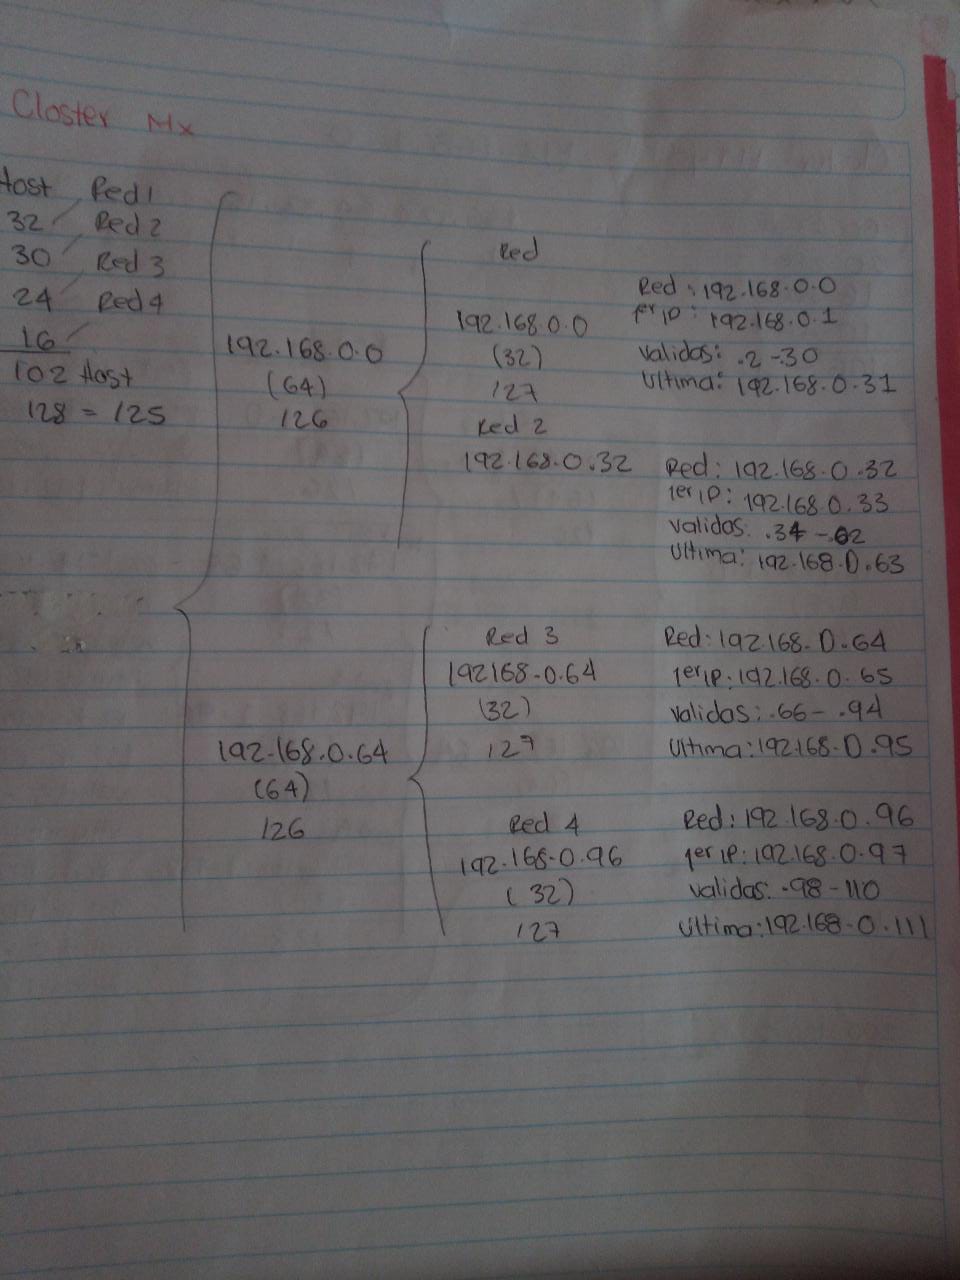 Closter Mx
Host Red 1
32 Red 2
30 Red 3
24 Red 4
16
102 Host
128 = 125
192.168.0.0
(64)
126
192.168.0.64
(64)
126
Red
192.168.0.0
(32)
127
Red 2
192.168.0.32
Red: 192.168.0.0
1er IP: 192.168.0.1
Validas: .2 - 30
Ultima: 192.168.0.31
Red: 192.168.0.32
1er IP: 192.168.0.33
Validas: .34 - 62
Ultima: 192.168.0.63
Red 3
192168.0.64
(32)
127
Red: 192.168.0.64
1er IP: 192.168.0.65
Validas: .66 - .94
Ultima: 192.168.0.95
Red 4
192.168.0.96
(32)
127
Red: 192.168.0.96
1er IP: 192.168.0.97
Validas: .98 - 110
Ultima: 192.168.0.111